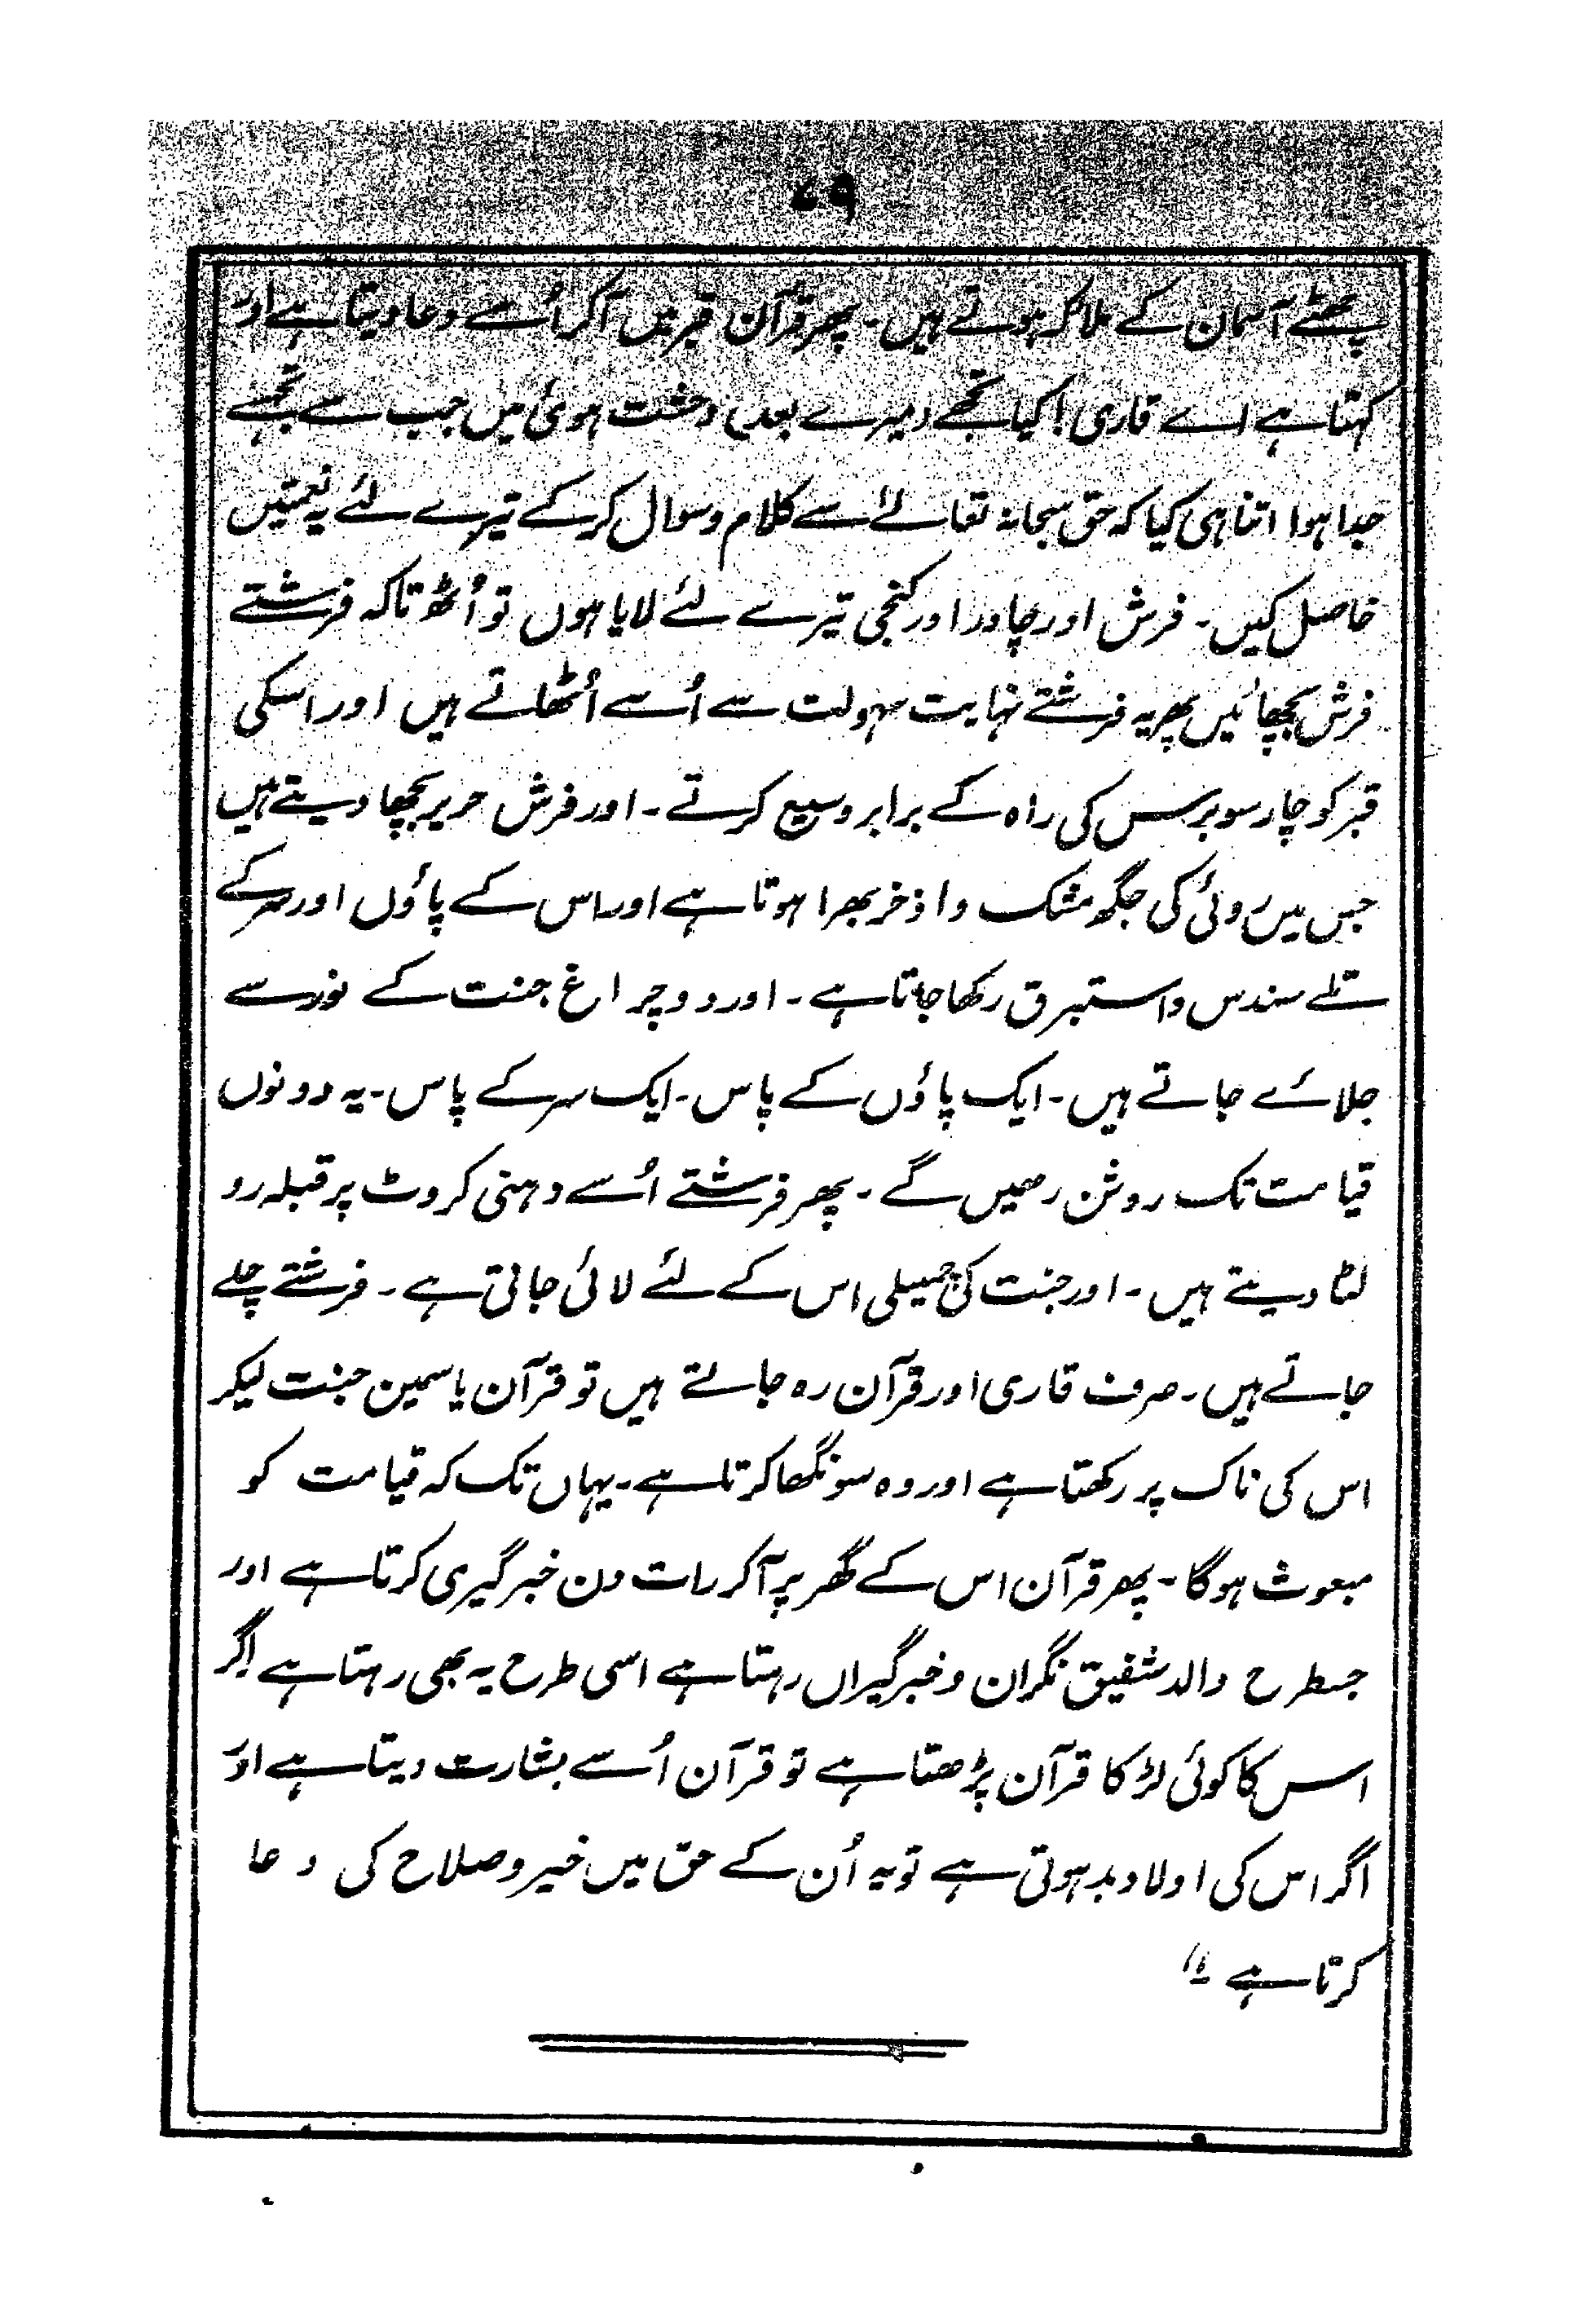 ۷۹
چھٹے آسمان کے ملائکہ ہوتے ہیں۔ پھر قرآن قبر میں آکر اُسے دعا دیتا ہے اور
کہتا ہے اے قاری! کیا تجھے (میرے بعد) وحشت ہوئی میں جب سے تجھسے
جدا ہوا اتنا ہی کیا کہ حق سبحانہ تعالےٰ سے کلام و سوال کرکے تیرے لئے یہ نعمتیں
حاصل کیں۔ فرش اور چادر اور کنجی تیرے لئے لایا ہوں تو اُٹھ تاکہ فرشتے
فرش بچھائیں پھر یہ فرشتے نہایت سہولت سے اُسے اُٹھاتے ہیں اور اسکی
قبر کو چار سو برس کی راہ کے برابر وسیع کرتے۔ اور فرش حریر بچھا دیتے ہیں
جس میں روئی کی جگہ مشک و اذخر بھرا ہوتا ہے اور اس کے پاؤں اور سر کے
تلے سندس و استبرق رکھا جاتا ہے۔ اور دو چراغ جنت کے نور سے
جلائے جاتے ہیں۔ ایک پاؤں کے پاس۔ ایک سر کے پاس۔ یہ دونوں
قیامت تک روشن رہیں گے۔ پھر فرشتے اُسے دہنی کروٹ پر قبلہ رو
لٹا دیتے ہیں۔ اور جنت کی چمبیلی اس کے لئے لائی جاتی ہے۔ فرشتے چلے
جاتے ہیں۔ صرف قاری اور قرآن رہ جاتے ہیں تو قرآن یاسمین جنت لیکر
اس کی ناک پر رکھتا ہے اور وہ سونگھا کرتا ہے۔ یہاں تک کہ قیامت کو
مبعوث ہوگا۔ پھر قرآن اس کے گھر پر آکر رات دن خبر گیری کرتا ہے اور
جسطرح والد شفیق نگران و خبر گیراں رہتا ہے اسی طرح یہ بھی رہتا ہے اگر
اس کا کوئی لڑکا قرآن پڑھتا ہے تو قرآن اُسے بشارت دیتا ہے اور
اگر اس کی اولاد بد ہوتی ہے تو یہ اُن کے حق میں خیر و صلاح کی دعا
کرتا ہے۔"